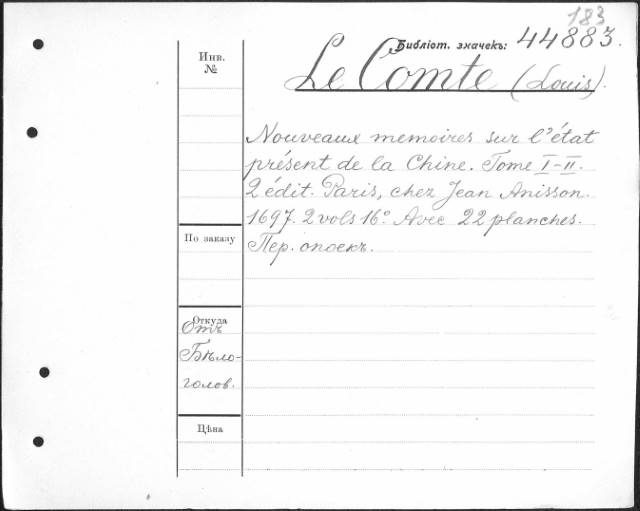 183
Библіот. значекъ: 44883.
Инв.
№
Le Comte (Louis).
Nouveaux memoires sur l'état
présent de la Chine. Tome I-II.
2 édit. Paris, chez Jean Anisson.
1697. 2 vols 16º. Avec 22 planches.
По заказу
Пер. опоекъ.
Откуда
Отъ
Бѣло-
голов.
Цѣна